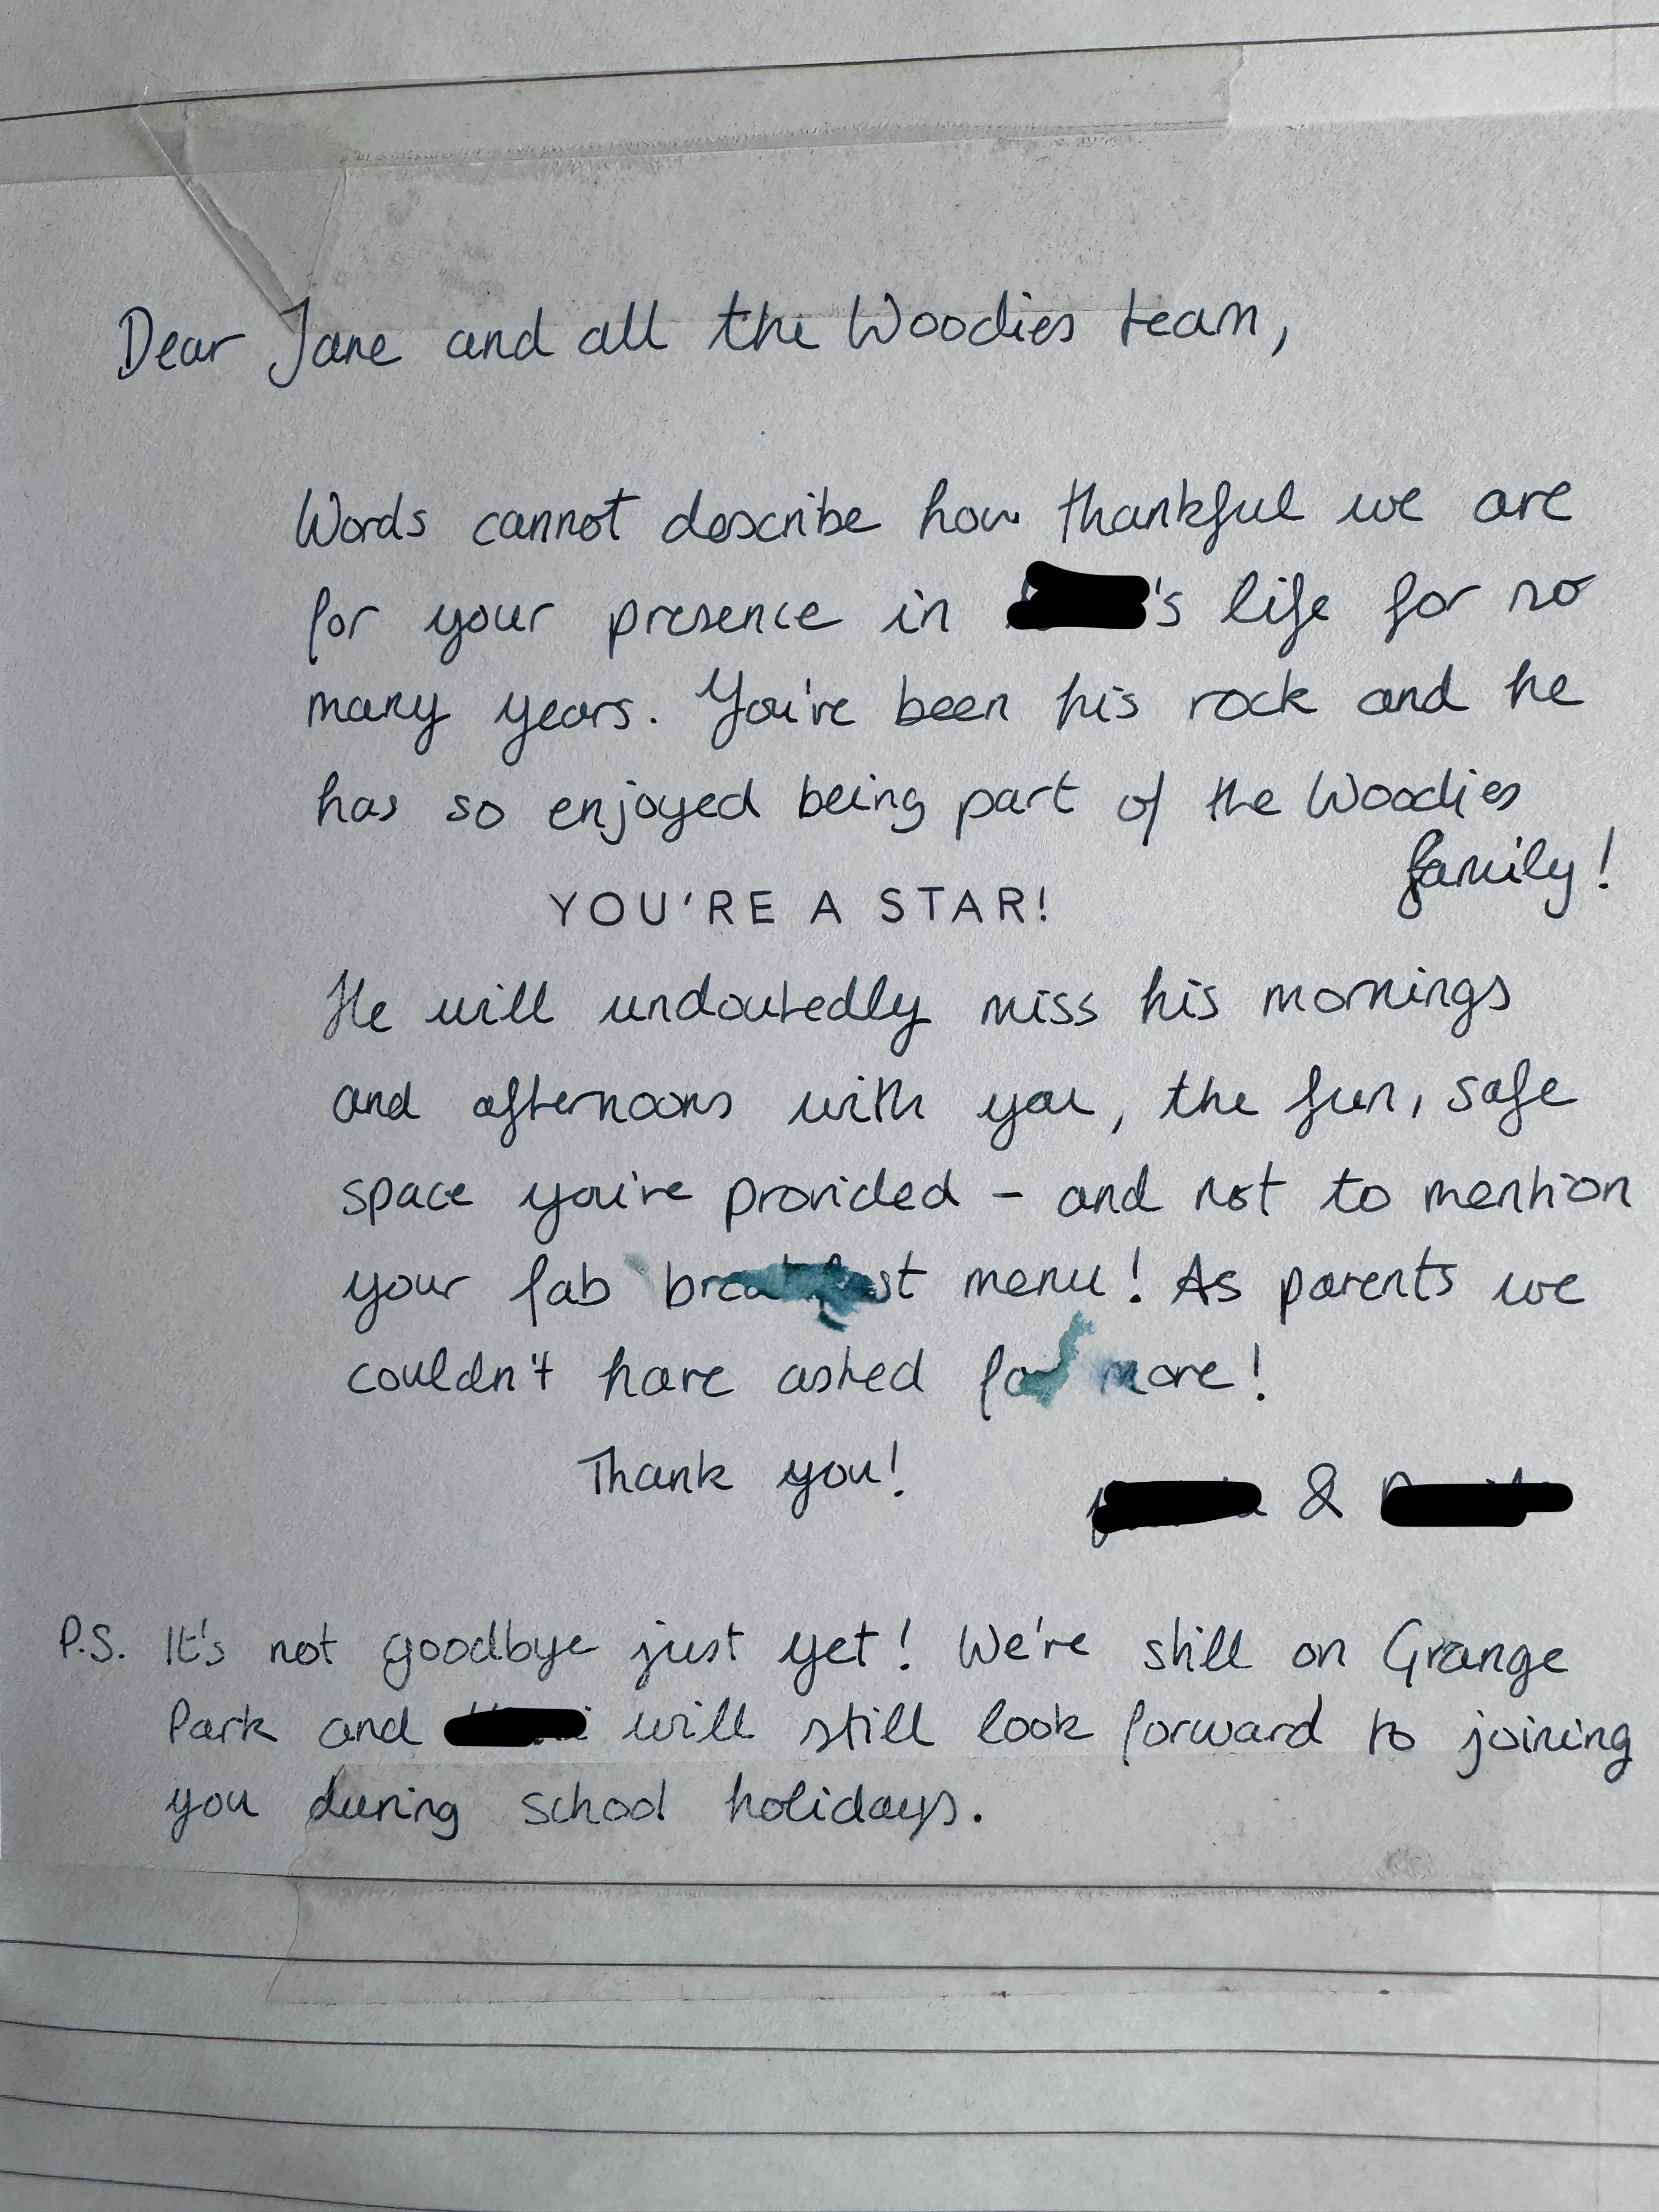 Dear Jane and all the Woodies team,
Words cannot describe how thankful we are
for your presence in 's life for so
many years. You've been his rock and he
has so enjoyed being part of the Woodies
family!
YOU'RE A STAR!
He will undoutedly miss his mornings
and afternoons with you, the fun, safe
space you've provided – and not to mention
your fab breakfast menu! As parents we
couldn't have asked for more!
Thank you! &
P.S. It's not goodbye just yet! We're still on Grange
Park and will still look forward to joining
you during school holidays.